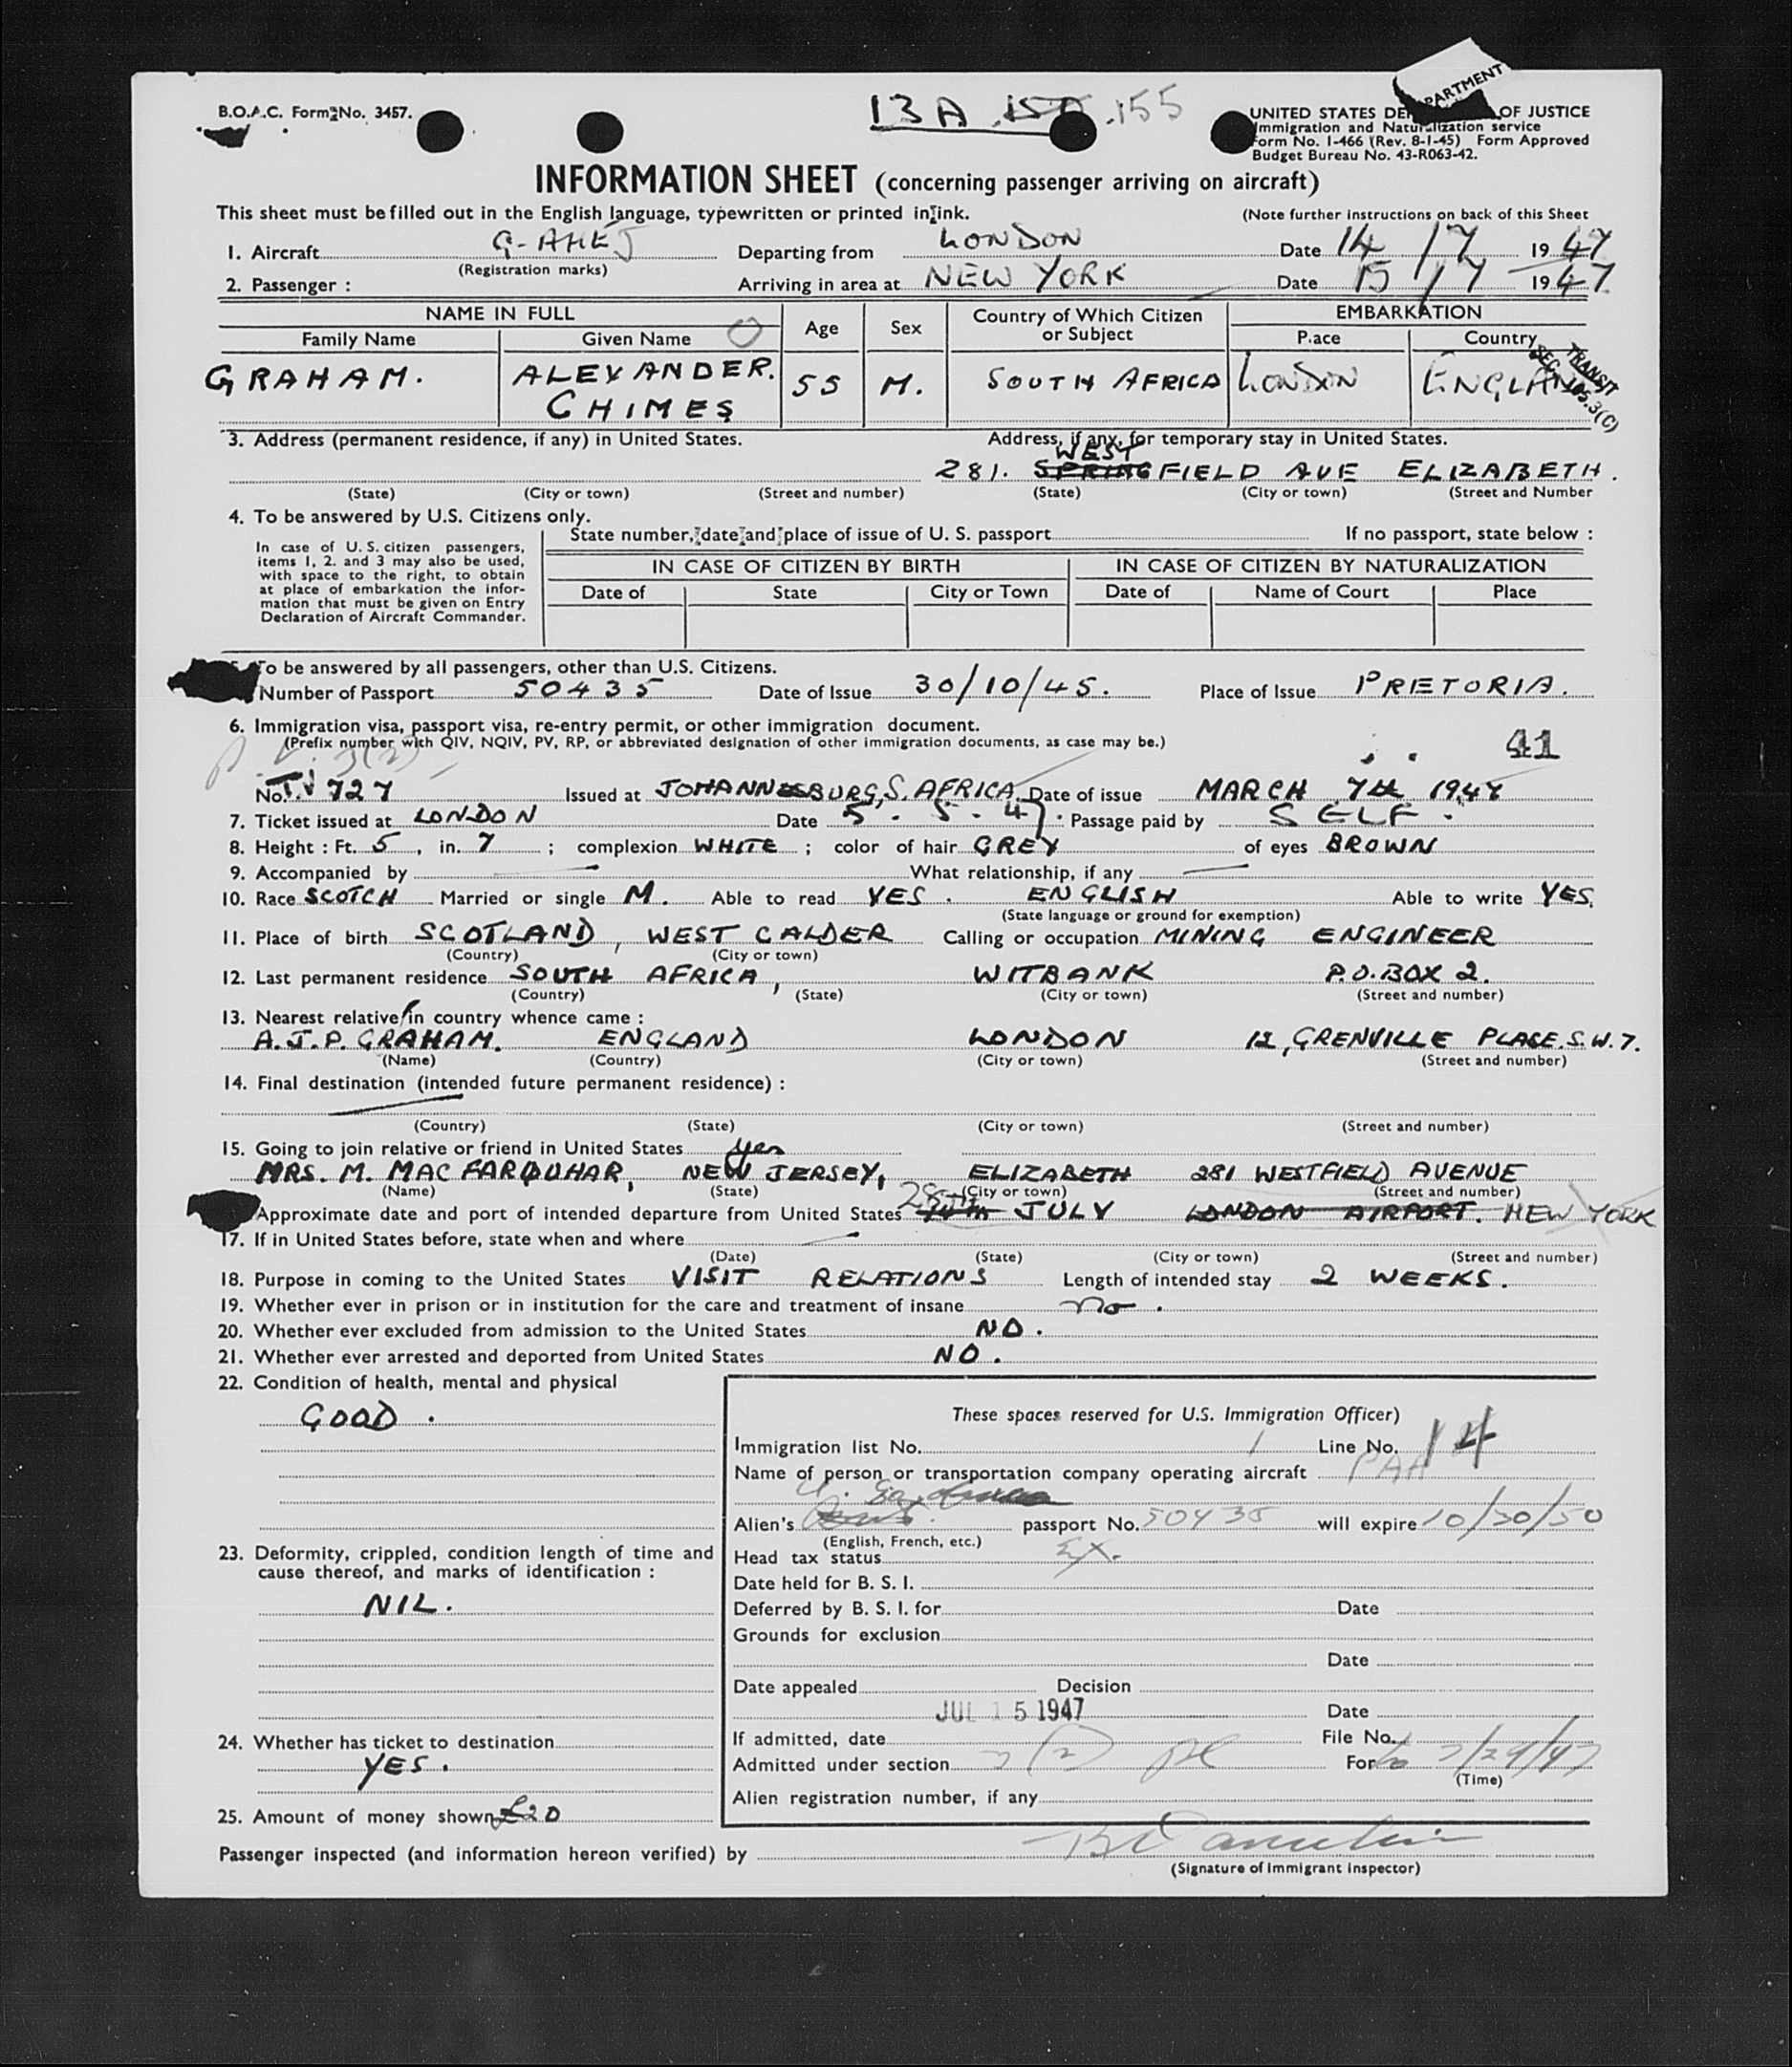 B.O.A.C. Form No. 3457.
13A 155
PARTMENT
UNITED STATES DE OF JUSTICE
Immigration and Naturalization service
Form No. I-466 (Rev. 8-1-45) Form Approved
Budget Bureau No. 43-R063-42.
INFORMATION SHEET (concerning passenger arriving on aircraft)
This sheet must be filled out in the English language, typewritten or printed in ink.
(Note further instructions on back of this Sheet
1. Aircraft G-AHEJ Departing from LONDON Date 14/7 1947
(Registration marks)
2. Passenger : Arriving in area at NEW YORK Date 15/7 1947
NAME IN FULL Age Sex Country of Which Citizen or Subject EMBARKATION
Family Name Given Name Place Country
GRAHAM. ALEXANDER. 55 M. SOUTH AFRICA LONDON ENGLAND
CHIMES
TRANSIT
SEC. 105.3(C)
3. Address (permanent residence, if any) in United States. Address, if any, for temporary stay in United States.
WEST
281. SPRINGFIELD AVE ELIZABETH.
(State) (City or town) (Street and number) (State) (City or town) (Street and Number
4. To be answered by U.S. Citizens only.
State number, date and place of issue of U. S. passport If no passport, state below :
In case of U. S. citizen passengers,
items 1, 2. and 3 may also be used,
with space to the right, to obtain
at place of embarkation the infor-
mation that must be given on Entry
Declaration of Aircraft Commander.
IN CASE OF CITIZEN BY BIRTH IN CASE OF CITIZEN BY NATURALIZATION
Date of State City or Town Date of Name of Court Place
To be answered by all passengers, other than U.S. Citizens.
Number of Passport 50435 Date of Issue 30/10/45. Place of Issue PRETORIA.
6. Immigration visa, passport visa, re-entry permit, or other immigration document.
(Prefix number with QIV, NQIV, PV, RP, or abbreviated designation of other immigration documents, as case may be.)
3(2)
41
No. TV 727 Issued at JOHANNESBURG, S. AFRICA Date of issue MARCH 7th 1947
7. Ticket issued at LONDON Date 5. 5. 47. Passage paid by SELF.
8. Height : Ft. 5, in. 7 ; complexion WHITE ; color of hair GREY of eyes BROWN
9. Accompanied by What relationship, if any
10. Race SCOTCH Married or single M. Able to read YES. ENGLISH Able to write YES.
(State language or ground for exemption)
11. Place of birth SCOTLAND, WEST CALDER Calling or occupation MINING ENGINEER
(Country) (City or town)
12. Last permanent residence SOUTH AFRICA, WITBANK P.O. BOX 2.
(Country) (State) (City or town) (Street and number)
13. Nearest relative in country whence came :
A.J.P. GRAHAM. ENGLAND LONDON 12, GRENVILLE PLACE. S.W.7.
(Name) (Country) (City or town) (Street and number)
14. Final destination (intended future permanent residence) :
(Country) (State) (City or town) (Street and number)
15. Going to join relative or friend in United States yes
MRS. M. MACFARQUHAR, NEW JERSEY, ELIZABETH 281 WESTFIELD AVENUE
(Name) (State) (City or town) (Street and number)
Approximate date and port of intended departure from United States 28th JULY LONDON AIRPORT. NEW YORK
17. If in United States before, state when and where
(Date) (State) (City or town) (Street and number)
18. Purpose in coming to the United States VISIT RELATIONS Length of intended stay 2 WEEKS.
19. Whether ever in prison or in institution for the care and treatment of insane no.
20. Whether ever excluded from admission to the United States NO.
21. Whether ever arrested and deported from United States NO.
22. Condition of health, mental and physical
GOOD.
23. Deformity, crippled, condition length of time and
cause thereof, and marks of identification :
NIL.
24. Whether has ticket to destination
YES.
25. Amount of money shown £20
These spaces reserved for U.S. Immigration Officer)
Immigration list No. 1 Line No. 14
Name of person or transportation company operating aircraft PAA
Alien's passport No. 50435 will expire 10/30/50
(English, French, etc.)
Head tax status Ex.
Date held for B. S. I.
Deferred by B. S. I. for Date
Grounds for exclusion
Date
Date appealed Decision
JUL 15 1947 Date
If admitted, date File No.
Admitted under section 3(2) For to 7/29/47
(Time)
Alien registration number, if any
Passenger inspected (and information hereon verified) by
(Signature of Immigrant Inspector)